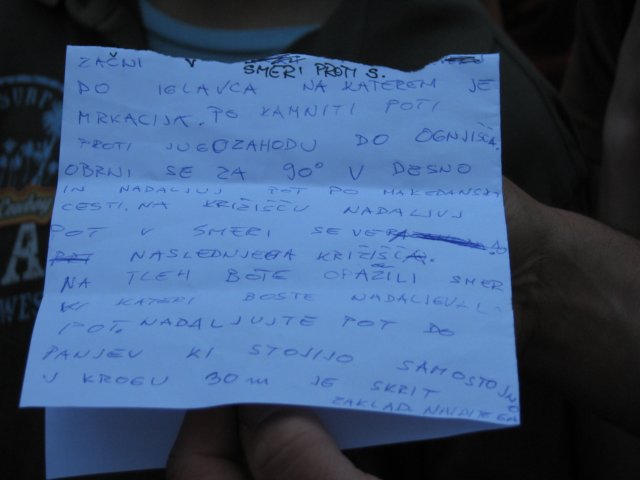 ZAČNI V
SMERI PROTI S.
DO IGLAVCA NA KATEREM JE
MRKACIJA. PO KAMNITI POTI
PROTI JUGOZAHODU DO OGNJIŠČA.
OBRNI SE ZA 90° V DESNO
IN NADALJUJ POT PO MAKEDAMSKI
CESTI. NA KRIŽIŠČU NADALJUJ
POT V SMERI SEVERA DO
NASLEDNJEGA KRIŽIŠČA.
NA TLEH BOTE OPAZILI SMER
KI KATERI BOSTE NADALJEVALI
POT. NADALJUJTE POT DO
PANJEV KI STOJIJO SAMOSTOJNO
V KROGU 30m JE SKRIT
ZAKLAD. NAJDITE GA
SURF
Cowboy
A
WES